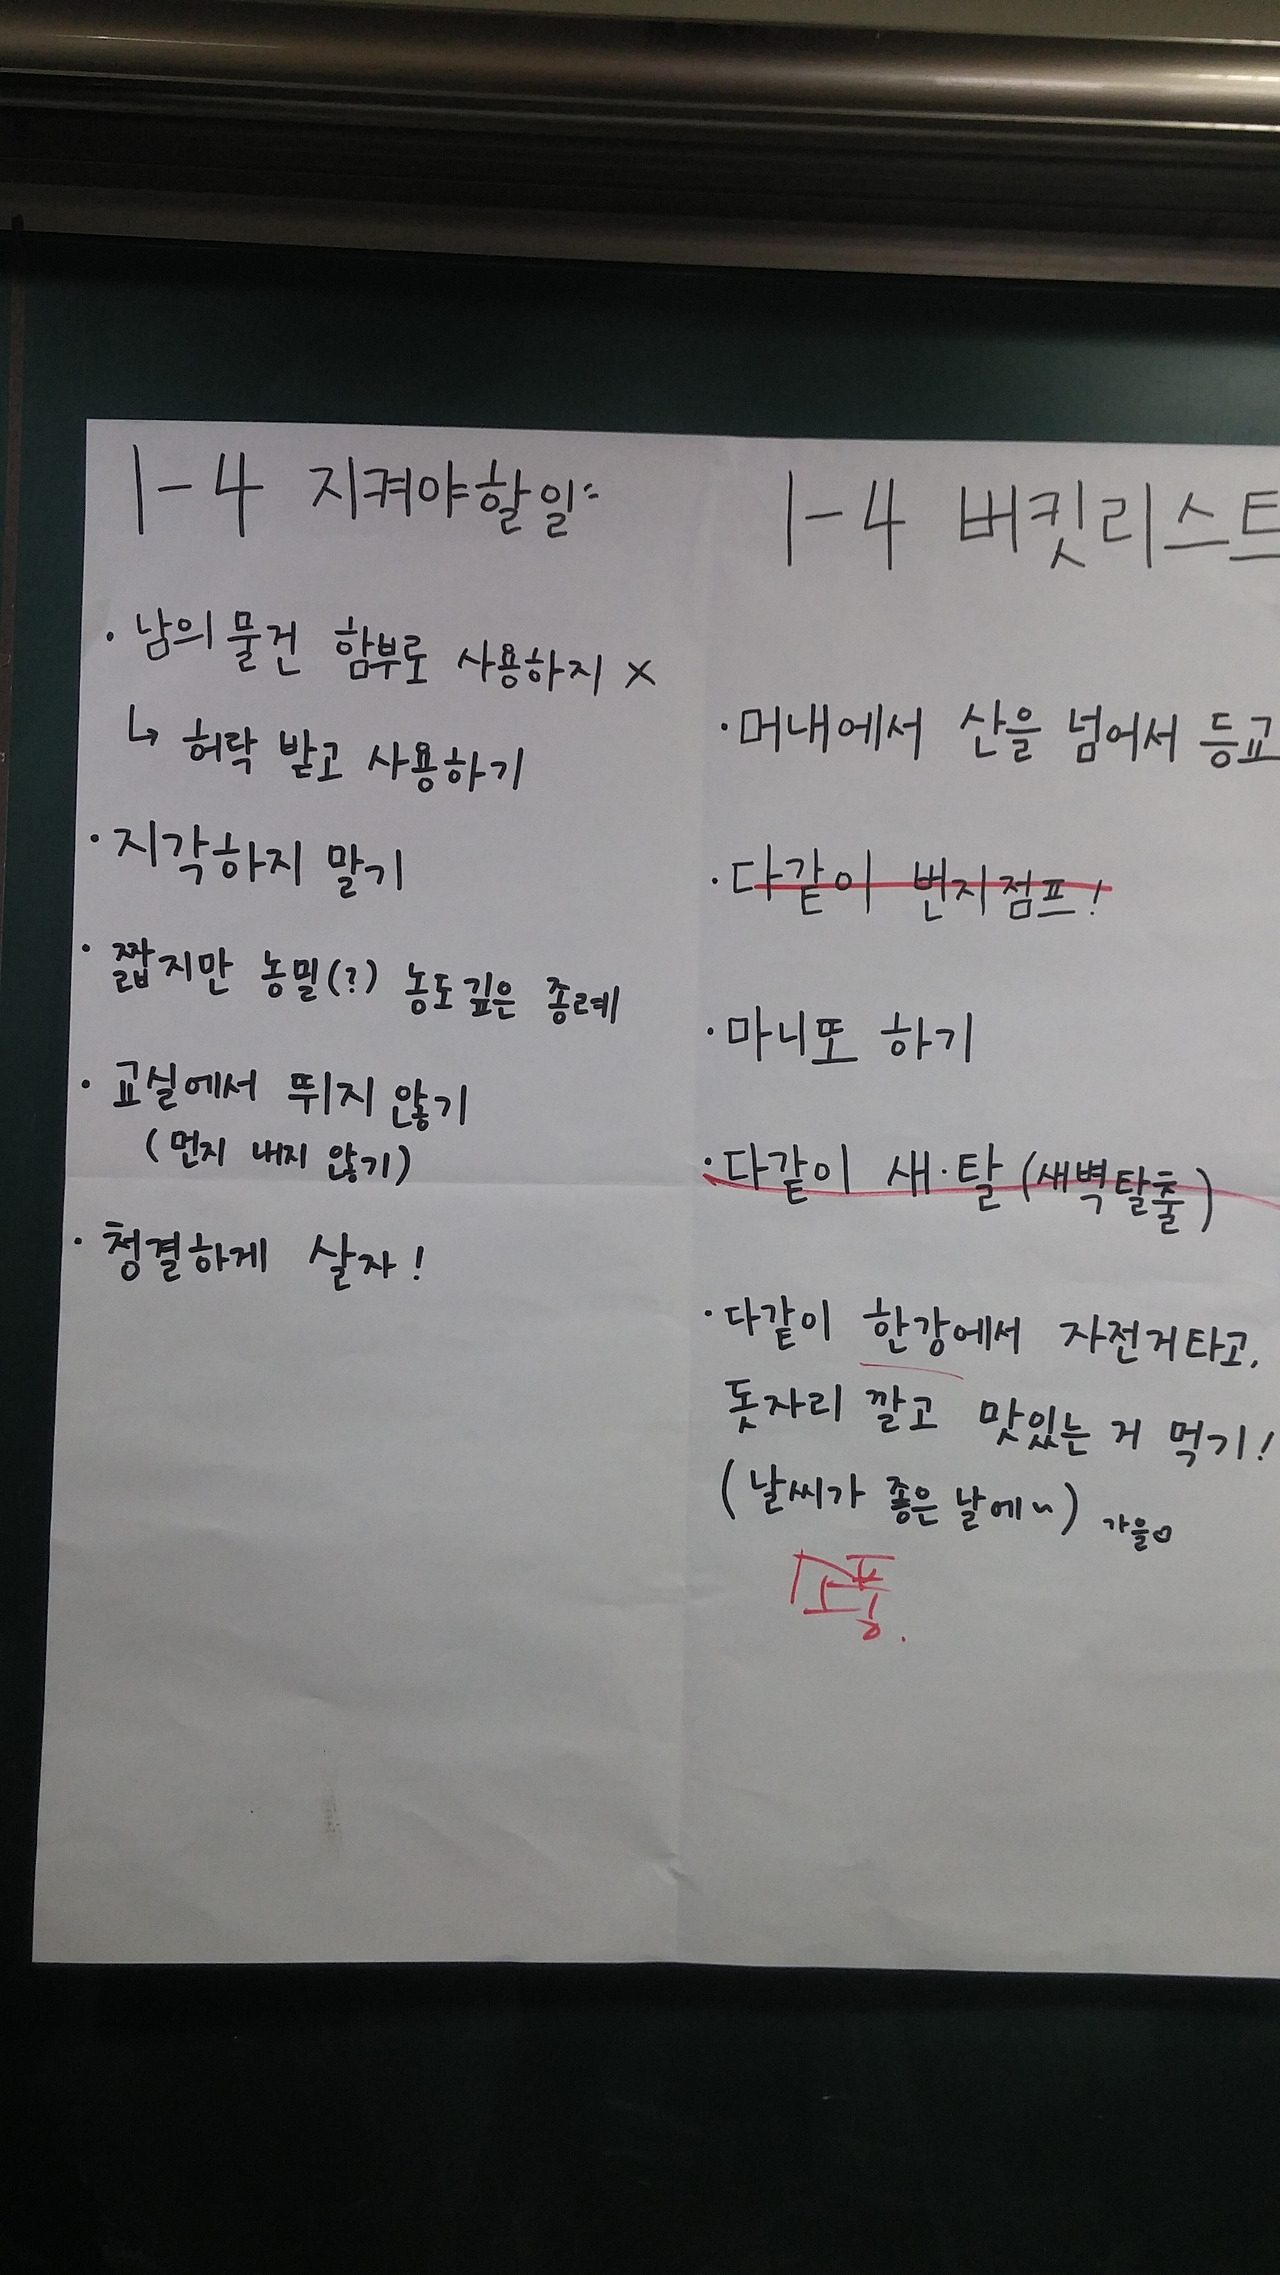 1-4 지켜야할일
· 남의 물건 함부로 사용하지 X
↳ 허락 받고 사용하기
· 지각하지 말기
· 짧지만 농밀(?) 농도깊은 종례
· 교실에서 뛰지 않기
(먼지 내지 않기)
· 청결하게 살자!
1-4 버킷리스트
· 머내에서 산을 넘어서 등교
· 다같이 번지점프!
· 마니또 하기
· 다같이 새·탈 (새벽탈출)
· 다같이 한강에서 자전거타고,
돗자리 깔고 맛있는 거 먹기!
(날씨가 좋은 날에~) 가을♡
소풍.